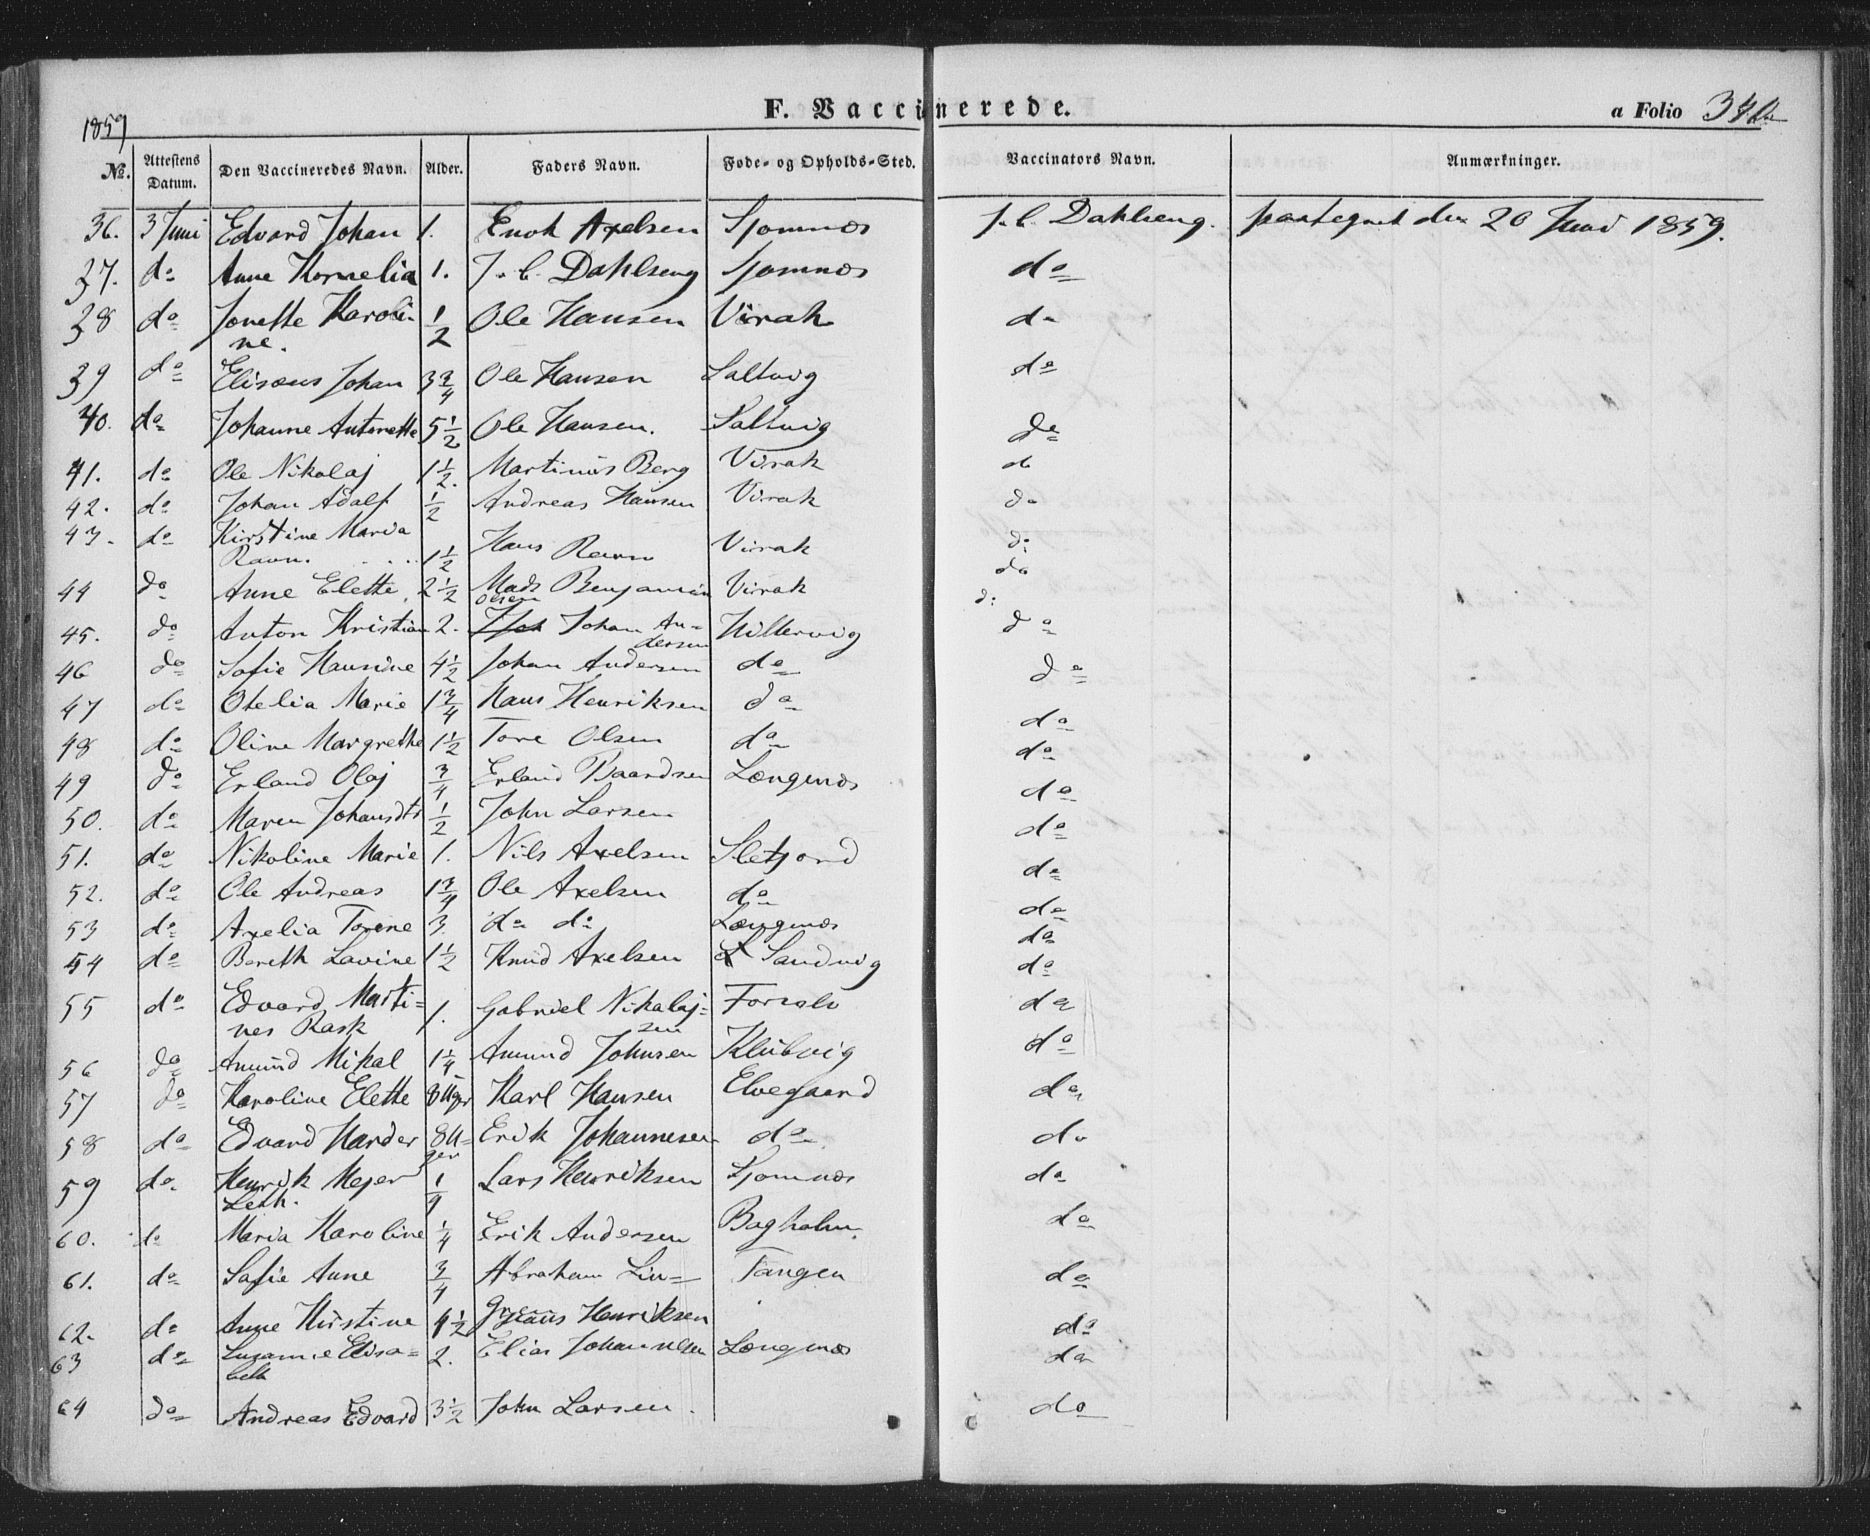 1859
F. Vaccinerede.
a Folio 340
No. Attestens Datum. Den Vaccineredes Navn. Alder. Faders Navn. Føde- og Opholds-Sted. Vaccinators Navn. Anmærkninger.
36. 3 Juni Edvard Johan 1. Enok Axelsen Sjomnæs J. C. Dahlseng. paategnet den 20 Juni 1859.
37. do Anne Kornelia 1. J. C. Dahlseng Sjomnæs do
38 do Jonette Karoli- 1/2 Ole Hansen Virak do
ne.
39 do Elisæus Johan 3 3/4 Ole Hansen Saltvig do
40. do Johanne Antonette 5 1/2 Ole Hansen. Saltvig do
41. do Ole Nikolaj 1 1/2. Martinus Berg Virak do
42. do Johan Adalf 1/2 Andreas Hansen Virak do
43. do Kirstine Maria
Ravn. 1 1/2 Hans Ravn Virak do
44 do Anne Elette 2 1/2 Mads Benjamin Virak do
Olsen do
45. do Anton Kristian 2. Johan An- Hillervig do
dersen
46 do Sofie Hansine 4 1/2 Johan Andersen do do
47 do Otelia Marie 1 3/4 Hans Henriksen do do
48 do Oline Margrethe 1 1/2 Tore Olsen do do
49 do Erland Olaj 3/4 Erland Baardsen Længenæs do
50. do Maren Johansdtr 1/2 John Larsen do
51. do Nikoline Marie 1. Nils Axelsen Sletjord do
52. do Ole Andreas 1 3/4 Ole Axelsen do do
53 do Axelia Torene 3. do do Længenæs do
54 do Bereth Lavine 1 1/2 Knud Axelsen Sandvig do
55 do Edvard Marti- Gabriel Nikolaj- do
nes Rask 1. sen
56 do Amund Mikal 1 1/4 Amund Johnsen Klubvig do
57 do Karoline Elette 8 Uger Karl Hansen Elvegaard do
58 do Edvard Harder 8 U- Erik Johannesen do do
ger
59 do Henrik Mejer Lars Henriksen Sjomnæs do
Leth.
60. do Maria Karoline 1/4 Erik Andersen Bogholm. do
61. do Safie Anne 3/4 Abraham Lin- Tangen do
62. do Anne Kirstine 4 1/2 Henriksen do
63 do Susanne Elisa- 2. Elias Johannesen Længenæs do
beth
64 do Andreas Edvard 3 1/2 John Larsen. do